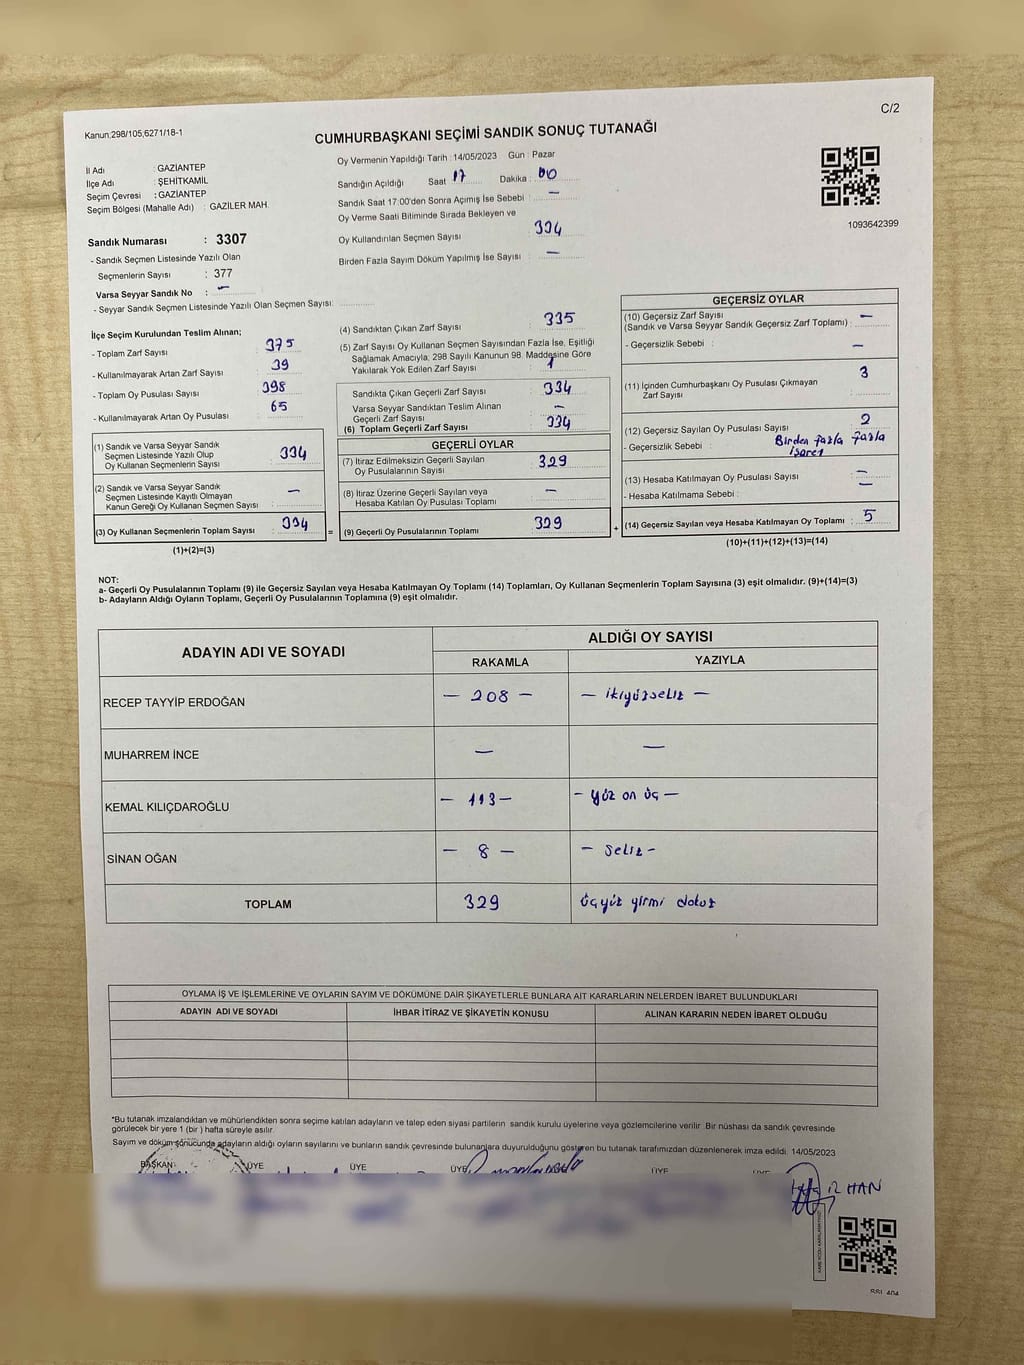 C/2
Kanun;298/105,6271/18-1
CUMHURBAŞKANI SEÇİMİ SANDIK SONUÇ TUTANAĞI
İl Adı : GAZİANTEP
İlçe Adı : ŞEHİTKAMİL
Seçim Çevresi : GAZİANTEP
Seçim Bölgesi (Mahalle Adı) : GAZİLER MAH.
Sandık Numarası : 3307
- Sandık Seçmen Listesinde Yazılı Olan
Seçmenlerin Sayısı : 377
Varsa Seyyar Sandık No : —
- Seyyar Sandık Seçmen Listesinde Yazılı Olan Seçmen Sayısı:
Oy Vermenin Yapıldığı Tarih : 14/05/2023 Gün : Pazar
Sandığın Açıldığı Saat : 17 Dakika : 00
Sandık Saat 17:00'den Sonra Açımış İse Sebebi : —
Oy Verme Saati Bitiminde Sırada Bekleyen ve
Oy Kullandırılan Seçmen Sayısı : 334
Birden Fazla Sayım Döküm Yapılmış İse Sayısı : —
1093642399
İlçe Seçim Kurulundan Teslim Alınan;
- Toplam Zarf Sayısı : 375
- Kullanılmayarak Artan Zarf Sayısı : 39
- Toplam Oy Pusulası Sayısı : 398
- Kullanılmayarak Artan Oy Pusulası : 65
(1) Sandık ve Varsa Seyyar Sandık
Seçmen Listesinde Yazılı Olup
Oy Kullanan Seçmenlerin Sayısı : 334
(2) Sandık ve Varsa Seyyar Sandık
Seçmen Listesinde Kayıtlı Olmayan
Kanun Gereği Oy Kullanan Seçmen Sayısı : —
(3) Oy Kullanan Seçmenlerin Toplam Sayısı : 334
(1)+(2)=(3)
=
(4) Sandıktan Çıkan Zarf Sayısı : 335
(5) Zarf Sayısı Oy Kullanan Seçmen Sayısından Fazla İse, Eşitliği
Sağlamak Amacıyla; 298 Sayılı Kanunun 98. Maddesine Göre
Yakılarak Yok Edilen Zarf Sayısı : 1
Sandıkta Çıkan Geçerli Zarf Sayısı : 334
Varsa Seyyar Sandıktan Teslim Alınan
Geçerli Zarf Sayısı : —
(6) Toplam Geçerli Zarf Sayısı : 334
GEÇERLİ OYLAR
(7) İtiraz Edilmeksizin Geçerli Sayılan
Oy Pusulalarının Sayısı : 329
(8) İtiraz Üzerine Geçerli Sayılan veya
Hesaba Katılan Oy Pusulası Toplamı : —
(9) Geçerli Oy Pusulalarının Toplamı : 329
+
GEÇERSİZ OYLAR
(10) Geçersiz Zarf Sayısı
(Sandık ve Varsa Seyyar Sandık Geçersiz Zarf Toplamı) : —
- Geçersizlik Sebebi : —
(11) İçinden Cumhurbaşkanı Oy Pusulası Çıkmayan
Zarf Sayısı : 3
(12) Geçersiz Sayılan Oy Pusulası Sayısı : 2
- Geçersizlik Sebebi : Birden fazla fazla
işaret
(13) Hesaba Katılmayan Oy Pusulası Sayısı : —
- Hesaba Katılmama Sebebi : —
(14) Geçersiz Sayılan veya Hesaba Katılmayan Oy Toplamı : 5
(10)+(11)+(12)+(13)=(14)
NOT:
a- Geçerli Oy Pusulalarının Toplamı (9) ile Geçersiz Sayılan veya Hesaba Katılmayan Oy Toplamı (14) Toplamları, Oy Kullanan Seçmenlerin Toplam Sayısına (3) eşit olmalıdır. (9)+(14)=(3)
b- Adayların Aldığı Oyların Toplamı, Geçerli Oy Pusulalarının Toplamına (9) eşit olmalıdır.
ADAYIN ADI VE SOYADI
ALDIĞI OY SAYISI
RAKAMLA YAZIYLA
RECEP TAYYİP ERDOĞAN — 208 — — ikiyüzsekiz —
MUHARREM İNCE — —
KEMAL KILIÇDAROĞLU — 113 — — yüz on üç —
SİNAN OĞAN — 8 — — sekiz —
TOPLAM 329 üçyüz yirmi dokuz
OYLAMA İŞ VE İŞLEMLERİNE VE OYLARIN SAYIM VE DÖKÜMÜNE DAİR ŞİKAYETLERLE BUNLARA AİT KARARLARIN NELERDEN İBARET BULUNDUKLARI
ADAYIN ADI VE SOYADI İHBAR İTİRAZ VE ŞİKAYETİN KONUSU ALINAN KARARIN NEDEN İBARET OLDUĞU
*Bu tutanak imzalandıktan ve mühürlendikten sonra seçime katılan adayların ve talep eden siyasi partilerin sandık kurulu üyelerine veya gözlemcilerine verilir. Bir nüshası da sandık çevresinde
görülecek bir yere 1 (bir ) hafta süreyle asılır.
Sayım ve döküm sonucunda adayların aldığı oyların sayılarını ve bunların sandık çevresinde bulunanlara duyurulduğunu gösteren bu tutanak tarafımızdan düzenlenerek imza edildi. 14/05/2023
BAŞKAN ÜYE ÜYE ÜYE ÜYE
HAN